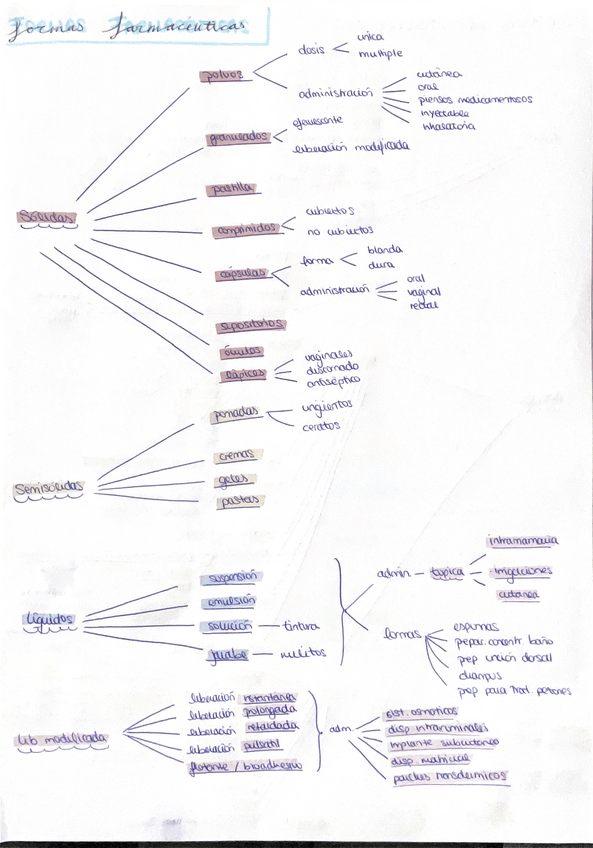 Formas Farmacéuticas
Sólidas
polvos
dosis
unica
multiple
administración
cutánea
oral
piensos medicamentosos
inyectable
inhalatoria
granulados
efervescente
liberación modificada
pastilla
comprimidos
cubiertos
no cubiertos
cápsulas
forma
blanda
dura
administración
oral
vaginal
rectal
supositorios
óvulos
lápices
vaginales
descornado
antiséptico
Semisólidas
pomadas
ungüentos
ceratos
cremas
geles
pastas
Líquidos
suspensión
emulsión
solución — tintura
jarabe — melitos
admin — tópica
intramamaria
irrigaciones
cutánea
formas
espumas
prepar. concentr. baño
prep unción dorsal
champus
prep para trat. pezones
lib modificada
liberación
liberación prolongada
liberación retardada
liberación pulsatil
flotante / bioadhesivo
adm.
sist. osmoticos
disp intraruminales
implante subcutaneo
disp. matricial
parches transdermicos